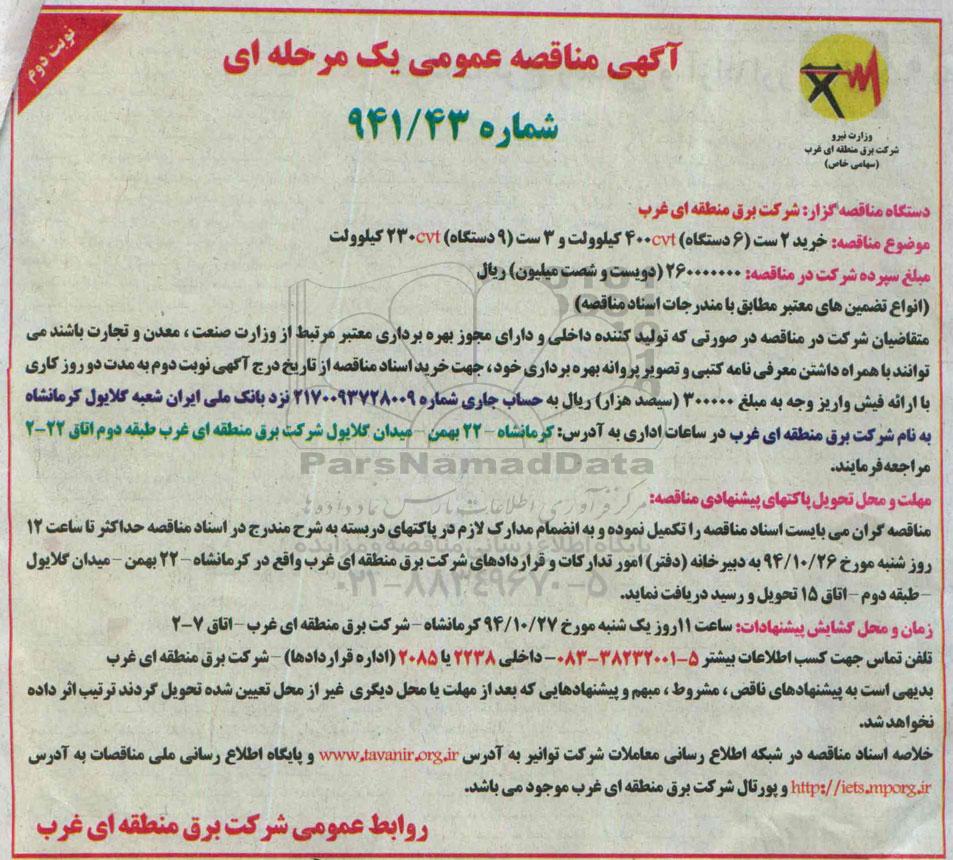 نوبت دوم
آگهی مناقصه عمومی یک مرحله ای
شماره ۹۴۱/۴۳
وزارت نیرو
شرکت برق منطقه ای غرب
(سهامی خاص)
دستگاه مناقصه گزار: شرکت برق منطقه ای غرب
موضوع مناقصه: خرید ۲ ست (۶ دستگاه) ۴۰۰cvt کیلوولت و ۳ ست (۹ دستگاه) ۲۳۰cvt کیلوولت
مبلغ سپرده شرکت در مناقصه: ۲۶۰۰۰۰۰۰۰ (دویست و شصت میلیون) ریال
(انواع تضمین های معتبر مطابق با مندرجات اسناد مناقصه)
متقاضیان شرکت در مناقصه در صورتی که تولید کننده داخلی و دارای مجوز بهره برداری معتبر مرتبط از وزارت صنعت ، معدن و تجارت باشند می
توانند با همراه داشتن معرفی نامه کتبی و تصویر پروانه بهره برداری خود ، جهت خرید اسناد مناقصه از تاریخ درج آگهی نوبت دوم به مدت دو روز کاری
با ارائه فیش واریز وجه به مبلغ ۳۰۰۰۰۰ (سیصد هزار) ریال به حساب جاری شماره ۲۱۷۰۰۹۳۷۲۸۰۰۹ نزد بانک ملی ایران شعبه گلایول کرمانشاه
به نام شرکت برق منطقه ای غرب در ساعات اداری به آدرس: کرمانشاه – ۲۲ بهمن – میدان گلایول شرکت برق منطقه ای غرب طبقه دوم اتاق ۲۲-۲
مراجعه فرمایند.
ParsNamadData
مهلت و محل تحویل پاکتهای پیشنهادی مناقصه:
مناقصه گران می بایست اسناد مناقصه را تکمیل نموده و به انضمام مدارک لازم در پاکتهای دربسته به شرح مندرج در اسناد مناقصه حداکثر تا ساعت ۱۲
روز شنبه مورخ ۹۴/۱۰/۲۶ به دبیرخانه (دفتر) امور تدارکات و قراردادهای شرکت برق منطقه ای غرب واقع در کرمانشاه – ۲۲ بهمن – میدان گلایول
– طبقه دوم – اتاق ۱۵ تحویل و رسید دریافت نماید.
۰۲۱-۸۸۳۴۹۶۷۰-۵
زمان و محل گشایش پیشنهادات: ساعت ۱۱ روز یک شنبه مورخ ۹۴/۱۰/۲۷ کرمانشاه – شرکت برق منطقه ای غرب – اتاق ۷-۲
تلفن تماس جهت کسب اطلاعات بیشتر ۵-۳۸۲۳۲۰۰۱-۰۸۳ – داخلی ۲۲۳۸ یا ۲۰۸۵ (اداره قراردادها) – شرکت برق منطقه ای غرب
بدیهی است به پیشنهادهای ناقص ، مشروط ، مبهم و پیشنهادهایی که بعد از مهلت یا محل دیگری غیر از محل تعیین شده تحویل گردند ترتیب اثر داده
نخواهد شد.
خلاصه اسناد مناقصه در شبکه اطلاع رسانی معاملات شرکت توانیر به آدرس www.tavanir.org.ir و پایگاه اطلاع رسانی ملی مناقصات به آدرس
http://iets.mporg.ir و پورتال شرکت برق منطقه ای غرب موجود می باشد.
روابط عمومی شرکت برق منطقه ای غرب